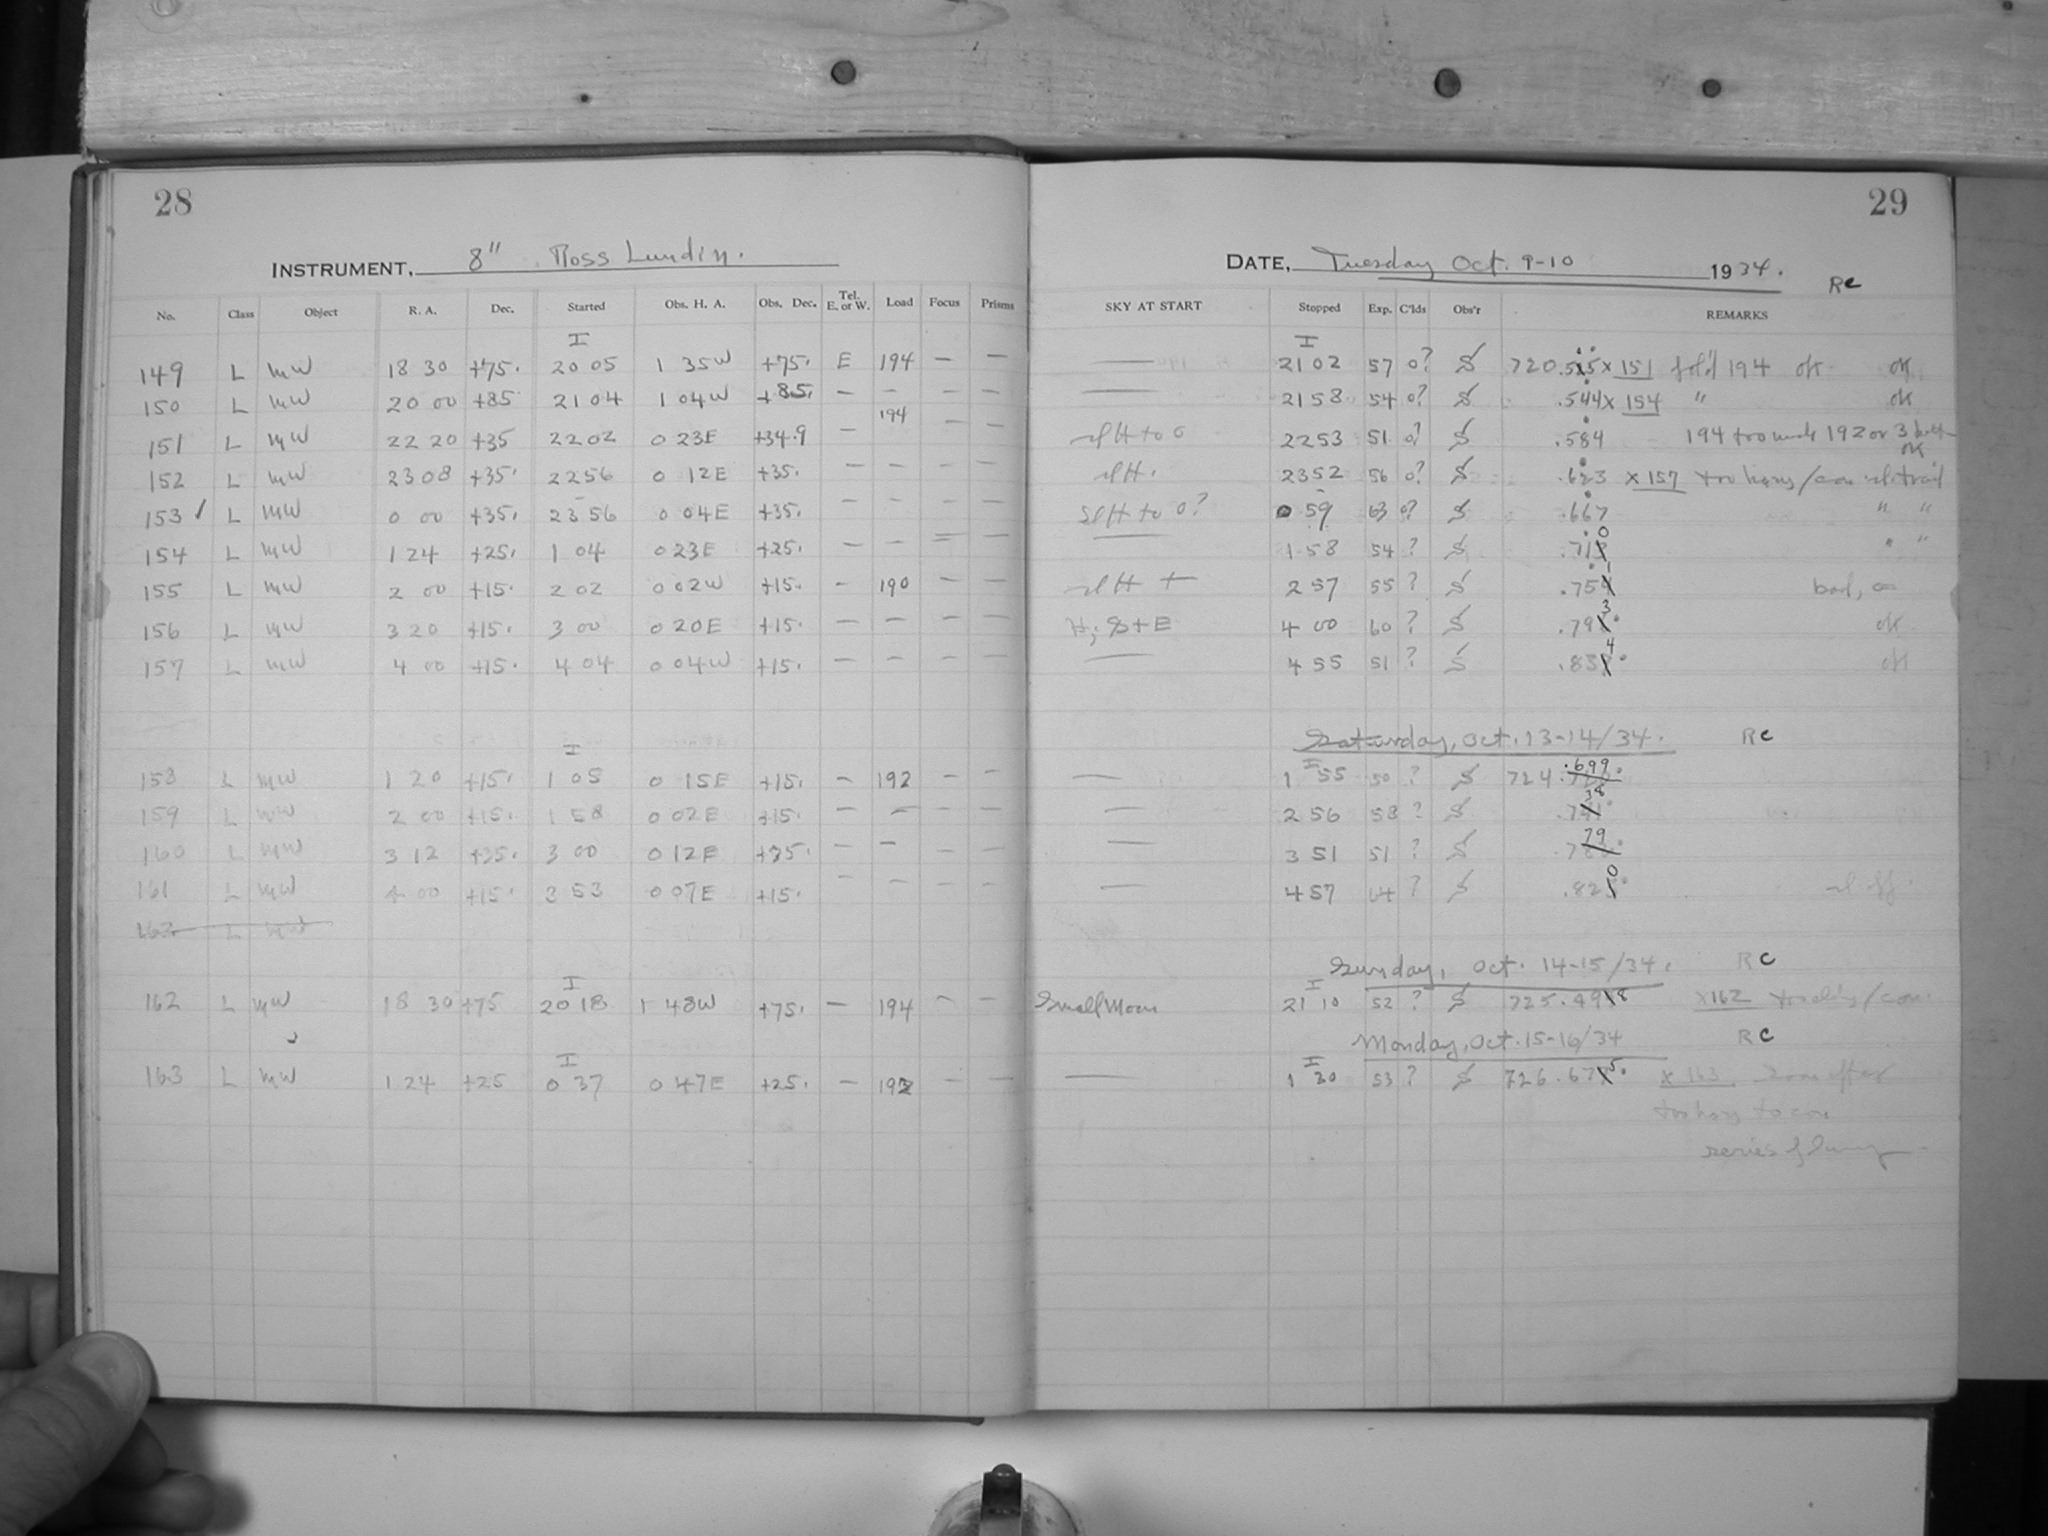 28
29
INSTRUMENT, 8" Ross Lundin.
DATE, Tuesday Oct. 9-10 1934.
RC
No. Class Object R. A. Dec. Started Obs. H. A. Obs. Dec. Tel. E. or W. Load Focus Prisms SKY AT START Stopped Exp. C'lds Obs'r REMARKS
I I
149 L MW 18 30 +75. 20 05 1 35W +75. E 194 — — — 21 02 57 0? S 720. x 151 194 ok ok
150 L MW 20 00 +85 21 04 1 04W +85. — — — — — 21 58 54 0? S .544 x 154 " ok
151 L MW 22 20 +35 22 02 0 23E +34.9 — 194 — — sl H to 0 22 53 51 0? S .584 194 too 192 or 3 ok
152 L MW 23 08 +35. 22 56 0 12E +35. — — — — sl H. 23 52 56 0? S .623 x 157 too sl. trail
153 L MW 0 00 +35. 23 56 0 04E +35. — — — — Sl H to 0? 0 59 63 0? S .667 " "
154 L MW 1 24 +25. 1 04 0 23E +25. — — — — — 1 58 54 ? S .710 " "
155 L MW 2 00 +15. 2 02 0 02W +15. — 190 — — sl H + 2 57 55 ? S .751 bad,
156 L MW 3 20 +15. 3 00 0 20E +15. — — — — H; S+E 4 00 60 ? S .793 ok
157 L MW 4 00 +15. 4 04 0 04W +15. — — — — — 4 55 51 ? S .834 ok
Saturday, Oct. 13-14/34. RC
I I
158 L MW 1 20 +15. 1 05 0 15E +15. — 192 — — — 1 55 50 ? S 724 .699
159 L MW 2 00 +15. 1 58 0 02E +15. — — — — — 2 56 58 ? S .738
160 L MW 3 12 +35. 3 00 0 12E +35. — — — — — 3 51 51 ? S .779
161 L MW 4 00 +15. 3 53 0 07E +15. — — — — — 4 57 64 ? S .820
162 L MW
Sunday, Oct. 14-15/34. RC
I I
162 L MW 18 30 +75 20 18 1 48W +75. — 194 — — Small Moon 21 10 52 ? S 725.498 x162
Monday, Oct. 15-16/34 RC
I I
163 L MW 1 24 +25 0 37 0 47E +25. — 192 — — — 1 30 53 ? S 726.675 x 163
to
series of